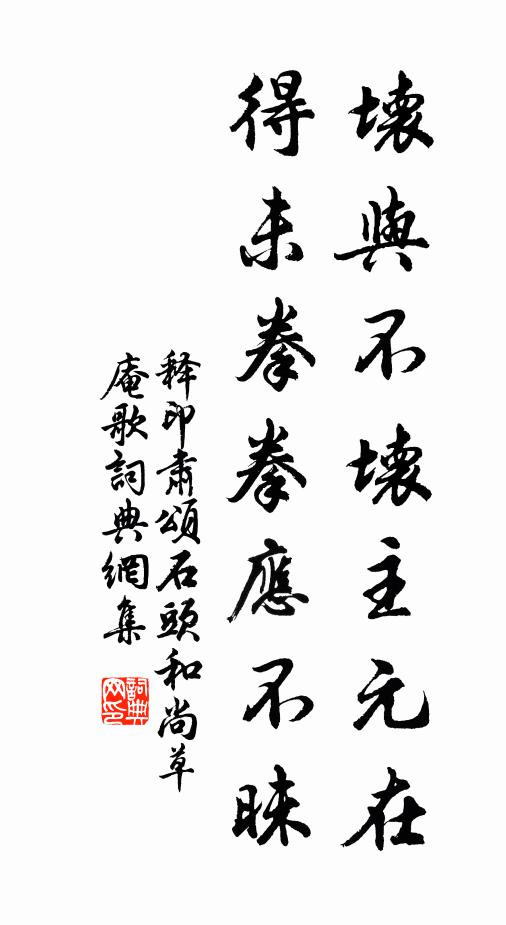 壞與不壞主元在
得未拳拳應不昧
釋印肅頌石頭和尚草
庵歌詞典網集
詞典
网印